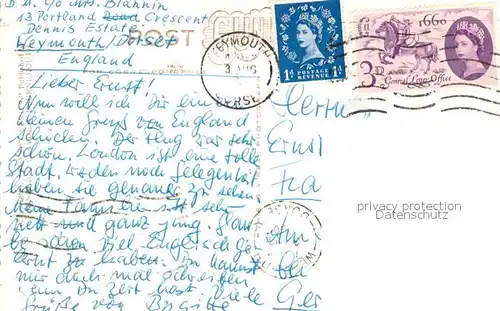 D. A. c/o Mrs. Brannin
13 Portland Road Crescent
Dennis Estate
Weymouth/Dorset
England
POST
WEYMOUTH
3 AUG
DORSET
1d POSTAGE REVENUE 1d
1660
3D
General Letter Office
Lieber Ernst!
Nun will ich Dir einen
kleinen Gruß von England
schicken. Der Flug war sehr
schön. London ist eine tolle
Stadt, werden noch Gelegenheit
haben sie genauer zu sehen.
Meine Familie ist sehr
nett und ganz jung. Glau
be schon viel Englisch ge
lernt zu haben. Du kannst
mir doch mal schreiben
wenn Du Zeit hast. Viele
Grüße von Brigitte
Herrn
Ernst
Fra
Am
Ger
privacy protection
watermark